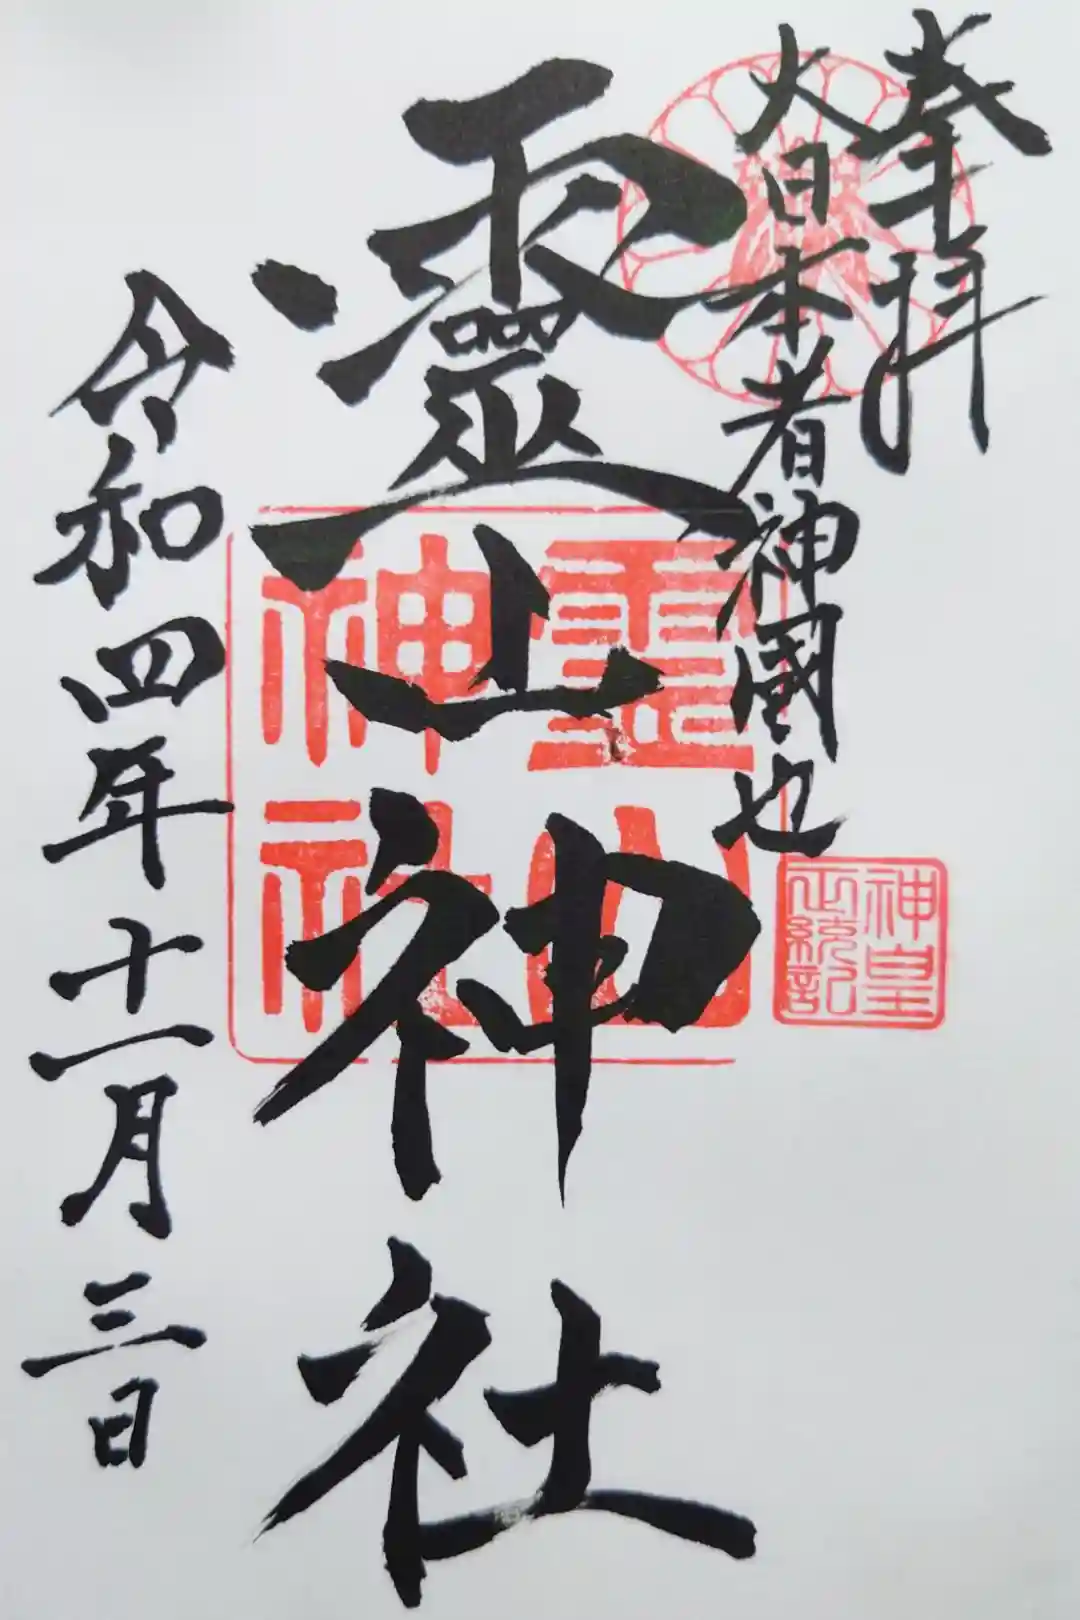 奉拝
大日本者神國也
靈山神社
令和四年十一月三日
靈山
神社
神皇
正統記